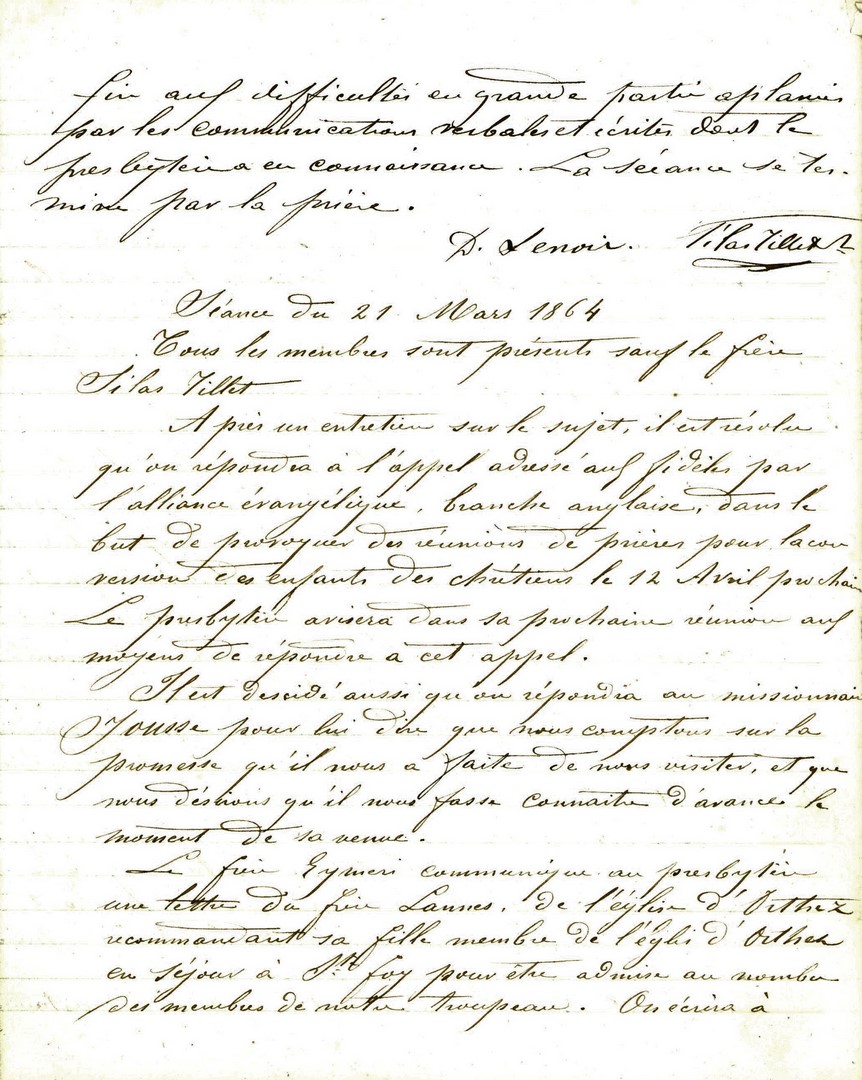 fin aux difficultés en grande partie aplanies
par les communications verbales et écrites dont le
presbytère a eu connaissance. La séance se ter-
mine par la prière.
D. Lenoir. Silas Tillet
Séance du 21 Mars 1864
Tous les membres sont présents sauf le frère
Silas Tillet
Après un entretien sur le sujet, il est résolu
qu'on répondra à l'appel adressé aux fidèles par
l'alliance évangélique, branche anglaise, dans le
but de provoquer des réunions de prières pour la con
version des enfants des chrétiens le 12 Avril prochain
Le presbytère avisera dans sa prochaine réunion aux
moyens de répondre a cet appel.
Il est descidé aussi qu'on répondra au missionnaire
Jousse pour lui dire que nous comptons sur la
promesse qu'il nous a faite de nous visiter, et que
nous désirons qu'il nous fasse connaitre d'avance le
moment de sa venue.
Le frère Eymeri communique au presbytère
une lettre du frère Lannes, de l'église d'Orthez
recommandant sa fille membre de l'église d'Orthez
en séjour à Ste foy pour être admise au nombre
des membres de notre troupeau. On écrira à